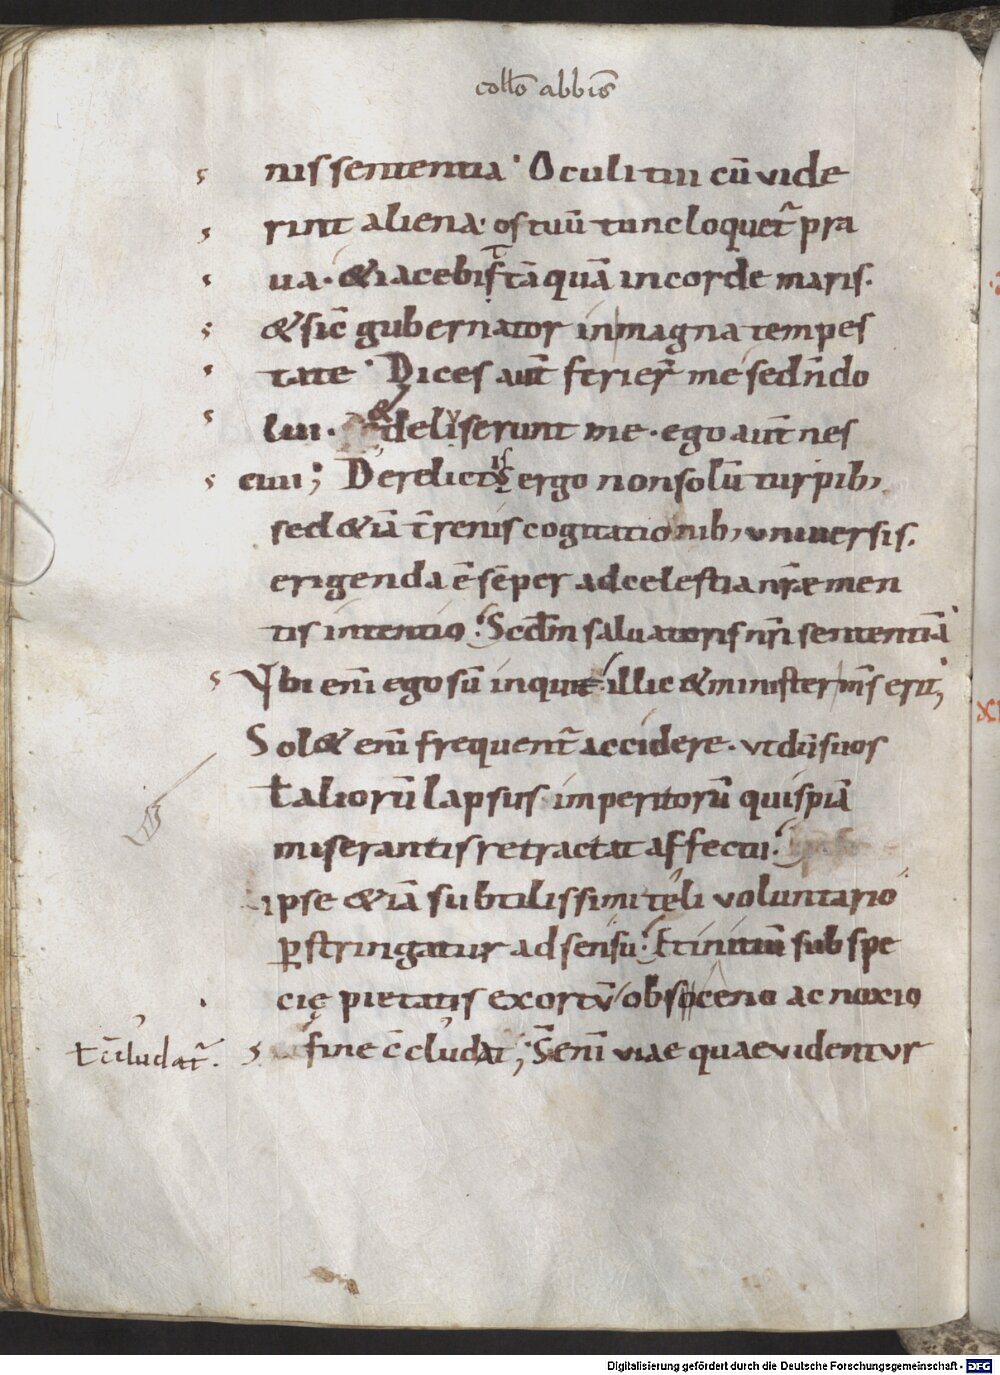 collo abbis
nis sententia · Oculi tui cū vide
rint aliena· os tuū tunc loquet̄ pra
ua · & iacebis tāquā in corde maris·
& sic̄ gubernator in magna tempes
tate · Dices aut̄ ferier̄ me sed n̄ do
lui · & deliserunt me · ego aut̄ nes
ciui ; Derelictis ergo non solū turpib;
sed & iā t̄renis cogitationib; vniuersis.
erigenda ē sēper ad celestia nr̄ae men
tis intentio : Scd̄m saluatoris nr̄i sententiā
Vbi enī ego sū inquit illic & minister m̄s erit;
Sol& enī frequent̄ accidere · vt dū suos
ł aliorū lapsus imperitorū quispiā
miserantis retractat affectu :
ipse & iā subtilissimi teli voluntario
ꝑstringatur ad sensu : Et initiū sub spe
cię pietatis exortū obsceno ac noxio
fine c̄cludat ; S enī viae quae videntur
ł c̄cludat̄ .
Digitalisierung gefördert durch die Deutsche Forschungsgemeinschaft - DFG